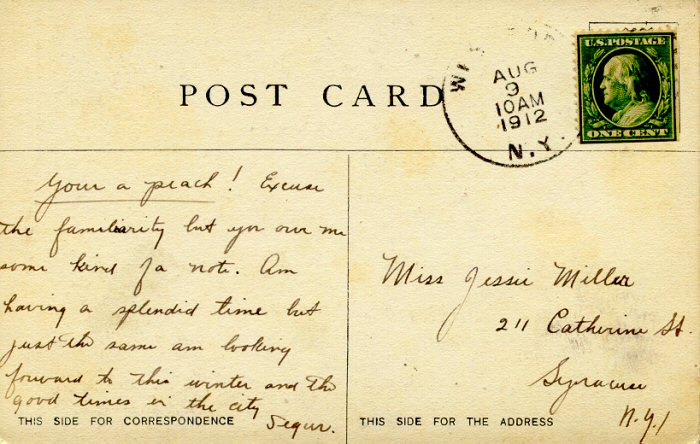 POST CARD
AUG
9
10AM
1912
N.Y.
U.S. POSTAGE
ONE CENT
Your a peach! Excuse
the familiarity but you owe me
some kind of a note. Am
having a splendid time but
just the same am looking
forward to this winter and the
good times in the city
Segur.
THIS SIDE FOR CORRESPONDENCE
Miss Jessie Miller
211 Catherine St.
Syracuse
N.Y.
THIS SIDE FOR THE ADDRESS